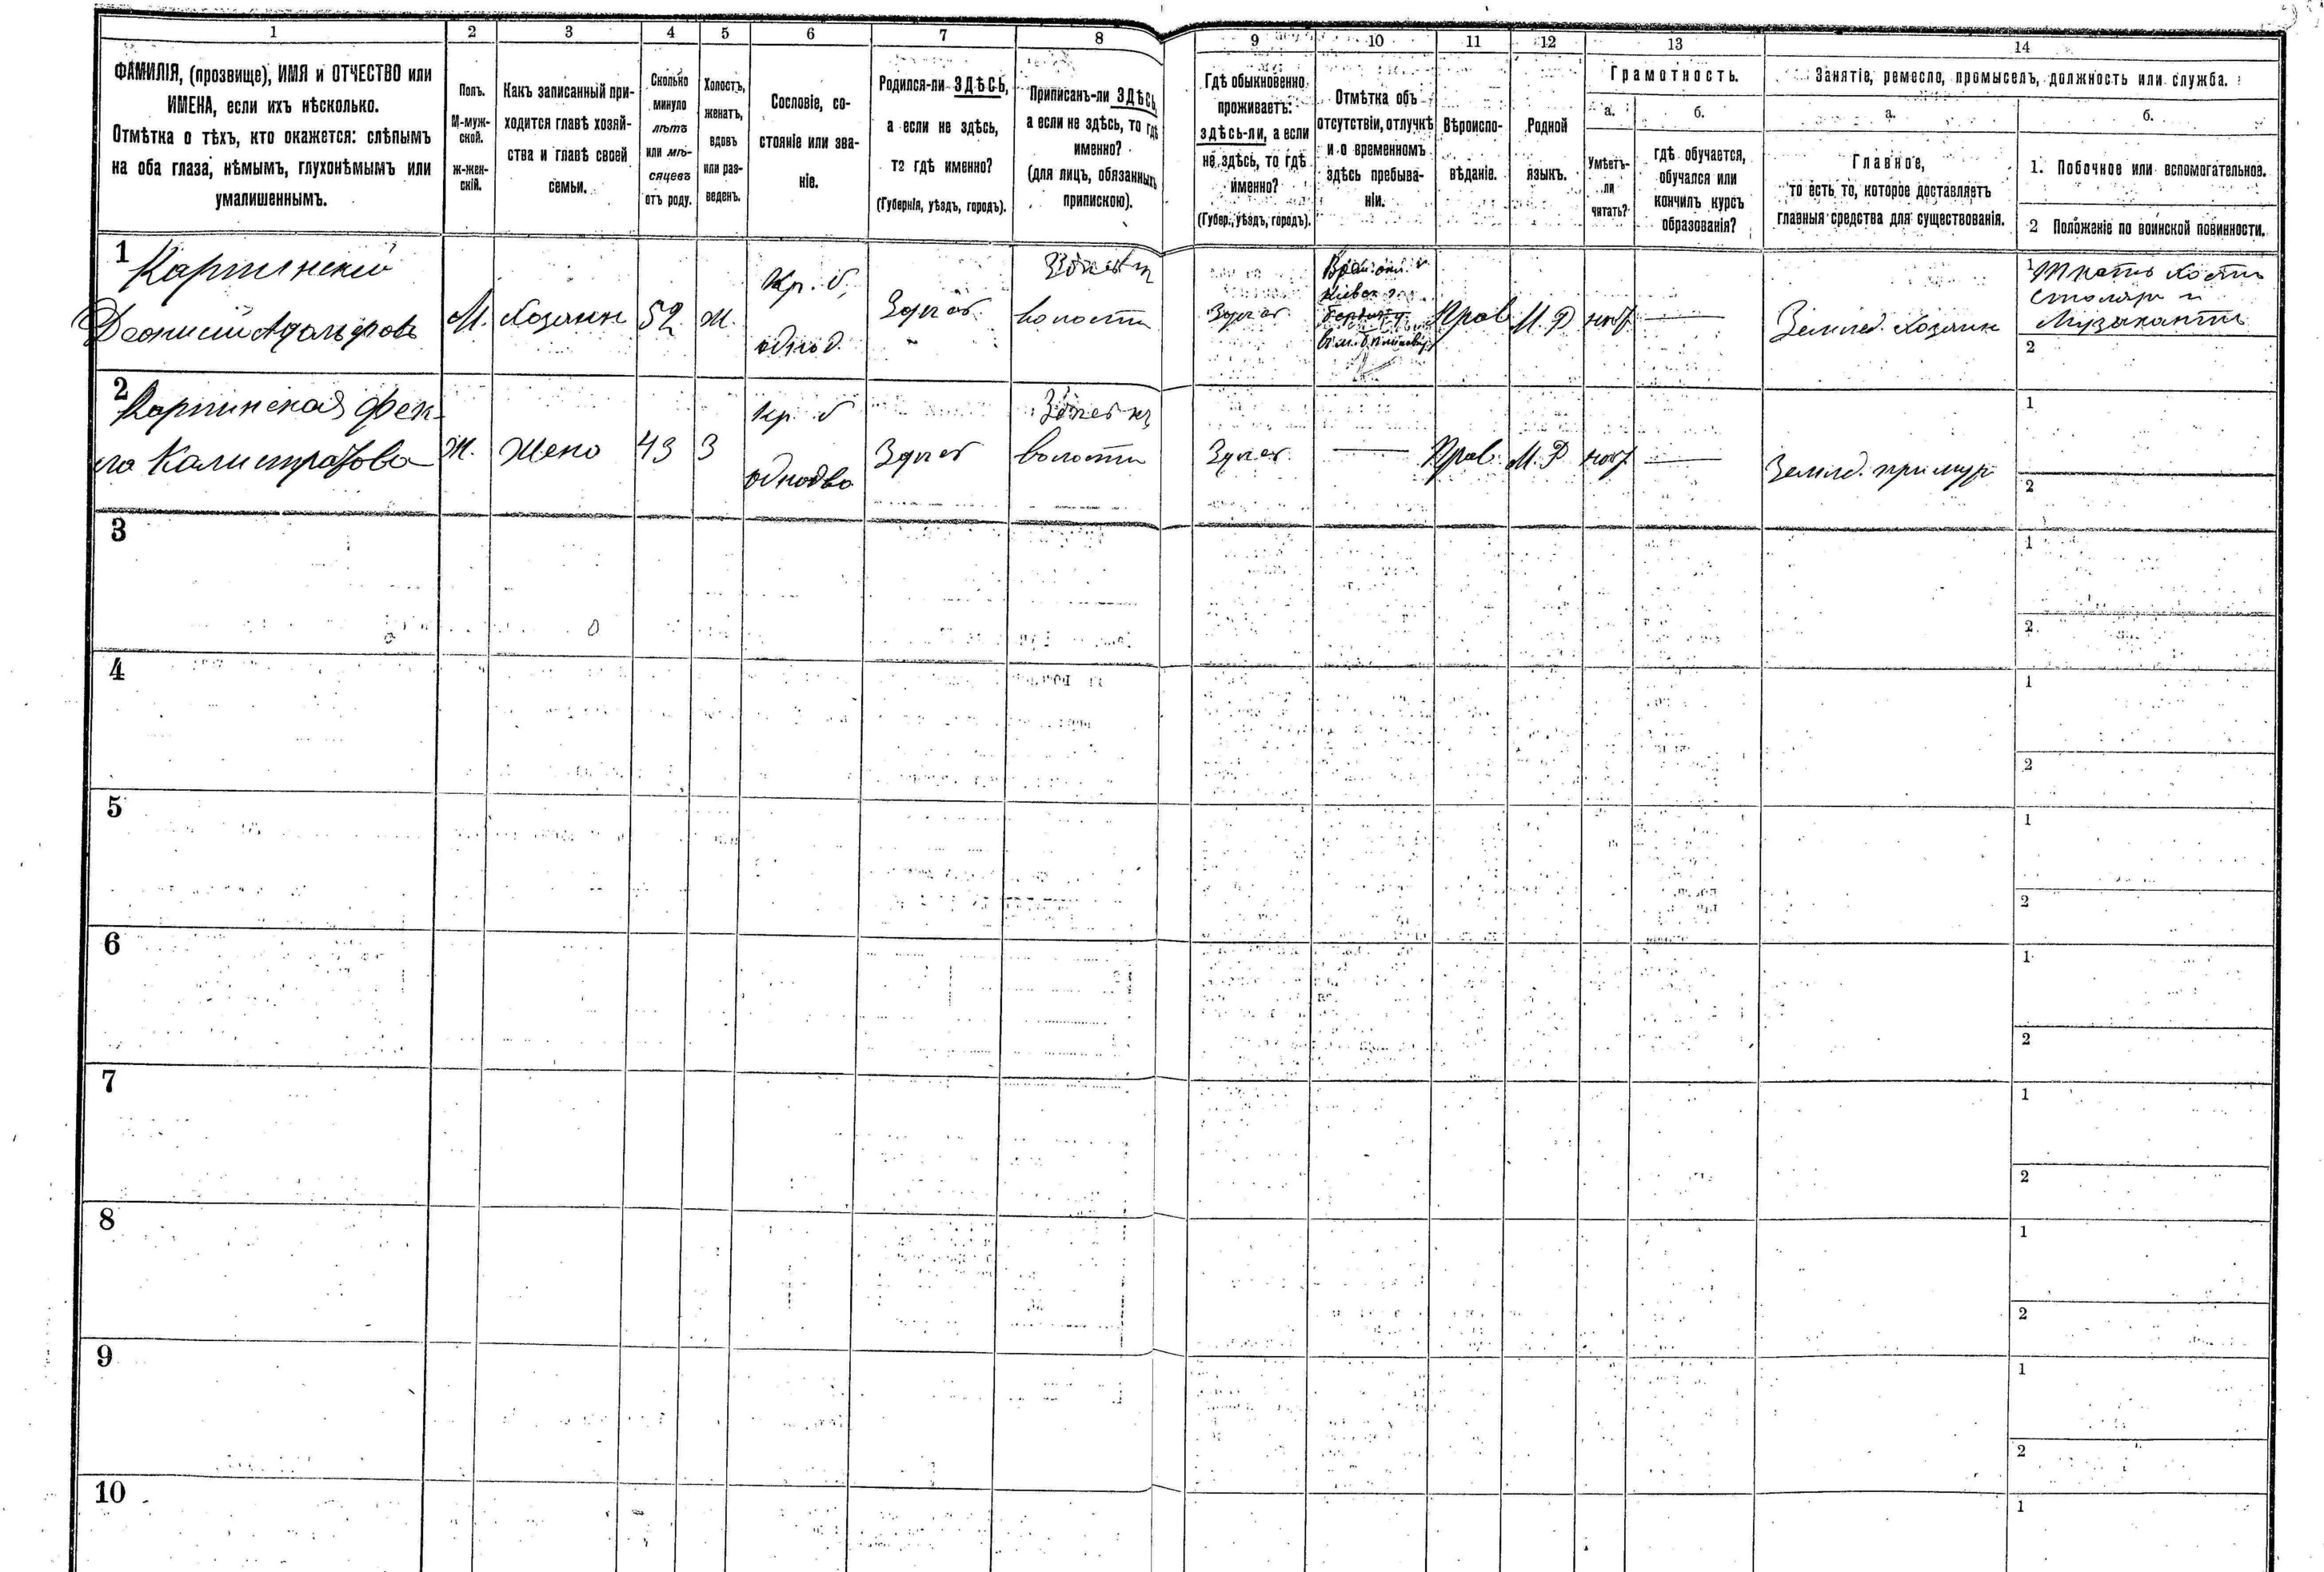 1 2 3 4 5 6 7 8 9 10 11 12 13 14
ФАМИЛІЯ, (прозвище), ИМЯ и ОТЧЕСТВО или
ИМЕНА, если ихъ нѣсколько.
Отмѣтка о тѣхъ, кто окажется: слѣпымъ
на оба глаза, нѣмымъ, глухонѣмымъ или
умалишеннымъ.
Полъ.
М-муж-
ской.
ж-жен-
скій.
Какъ записанный при-
ходится главѣ хозяй-
ства и главѣ своей
семьи.
Сколько
минуло
лѣтъ
или мѣ-
сяцевъ
отъ роду.
Холостъ,
женатъ,
вдовъ
или раз-
веденъ.
Сословіе, со-
стояніе или зва-
ніе.
Родился-ли ЗДѢСЬ,
а если не здѣсь,
то гдѣ именно?
(Губернія, уѣздъ, городъ).
Приписанъ-ли ЗДѢСЬ
а если не здѣсь, то гдѣ
именно?
(для лицъ, обязанныхъ
припискою).
Гдѣ обыкновенно
проживаетъ:
здѣсь-ли, а если
не здѣсь, то гдѣ
именно?
(Губер., уѣздъ, городъ).
Отмѣтка объ
отсутствіи, отлучкѣ
и о временномъ
здѣсь пребыва-
ніи.
Вѣроиспо-
вѣданіе.
Родной
языкъ.
Грамотность.
а.
Умѣетъ-
ли
читать?
б.
гдѣ обучается,
обучался или
кончилъ курсъ
образованія?
Занятіе, ремесло, промыселъ, должность или служба.
а.
Главное,
то есть то, которое доставляетъ
главныя средства для существованія.
б.
1. Побочное или вспомогательное.
2 Положеніе по воинской повинности.
1
Карпинскій
Деонисій Адольфовъ
М.
Хозяинъ
52
Ж.
Кр. б.
однод.
Здѣсь
волости
Здѣсь
Кіевск
Прав
М. Р
нѣтъ
—
Землед. Хозяинъ
1
столяръ и
Музыкантъ
2
2
Карпинская Фек-
ла Калистратова
Ж.
Жена
43
З
Кр. б
однодв
Здѣсь
волости
Здѣсь
—
Прав.
М. Р
нѣтъ
—
Землед. при мужѣ
1
2
3
1
2
4
1
2
5
1
2
6
1
2
7
1
2
8
1
2
9
1
2
10
1